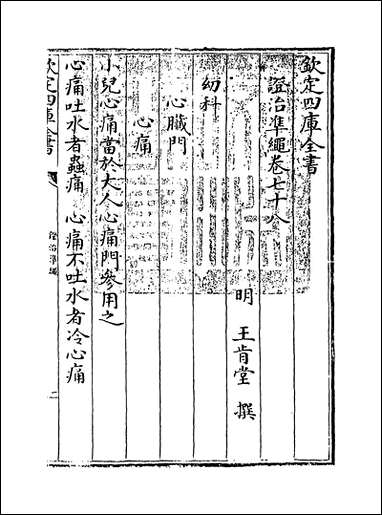 欽定四庫全書
證治準繩卷七十八
明 王肯堂 撰
幼科
心臟門
心痛
小兒心痛當於大人心痛門參用之
心痛吐水者蟲痛 心痛不吐水者冷心痛
欽定四庫全書
證治準繩